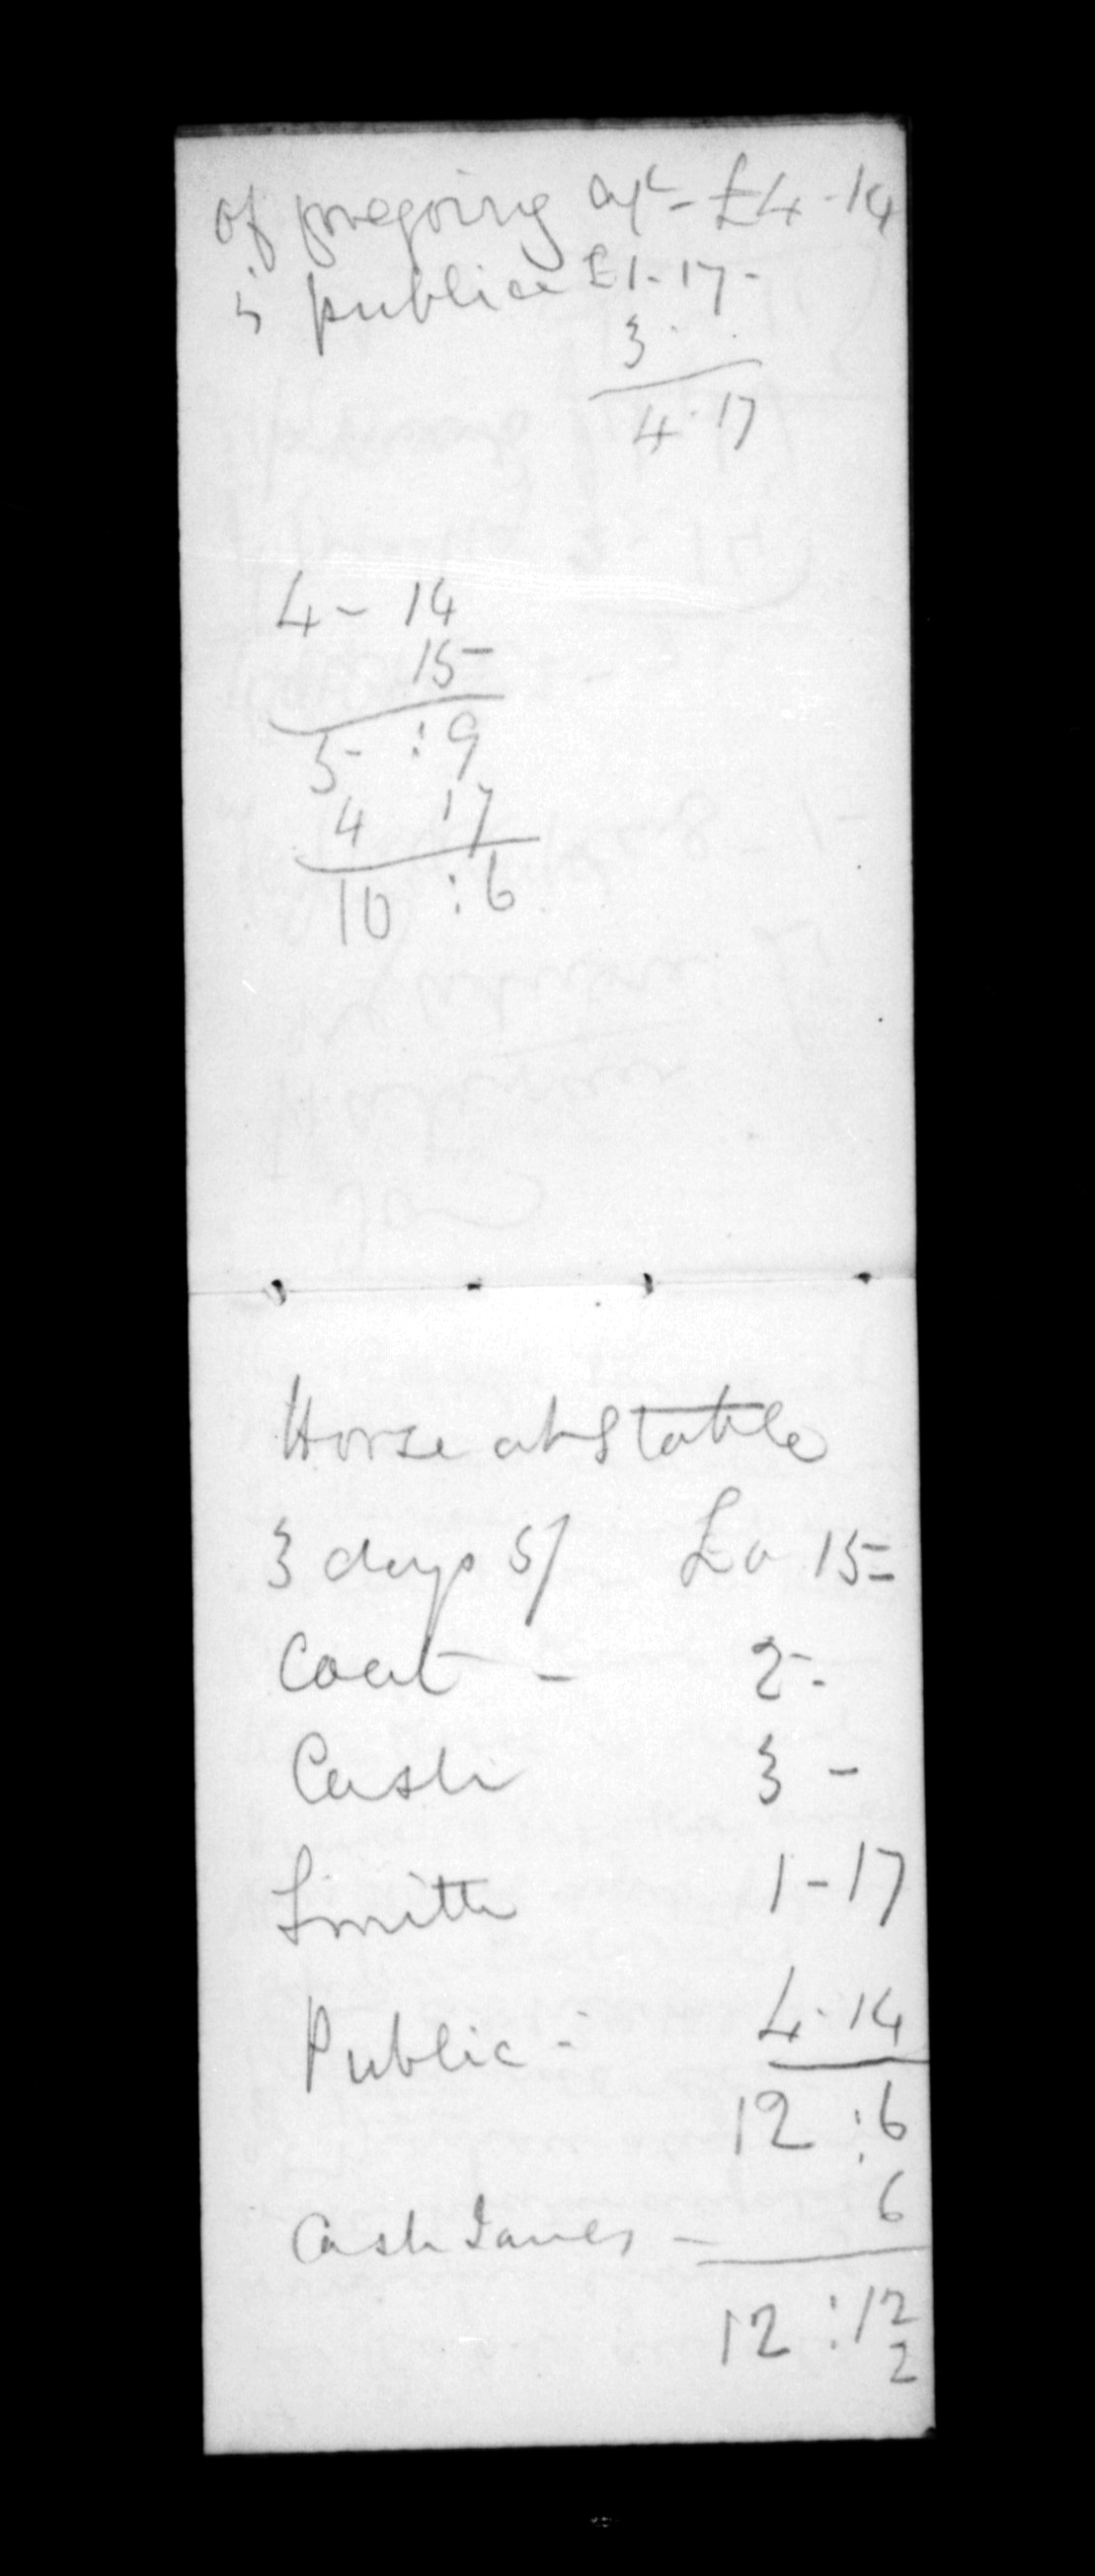 of foregoing a/c - £4-14
is public £1-17-
3 . .
4.17
4 - 14
15-
5- : 9
4 17
10 : 6
Horse at Stable
3 days 5/ £0 15=
Coat - 2-.
Cash 3 -
Smith 1-17
Public - 4.14
12 : 6
6
Cash James -
12 : 12
2